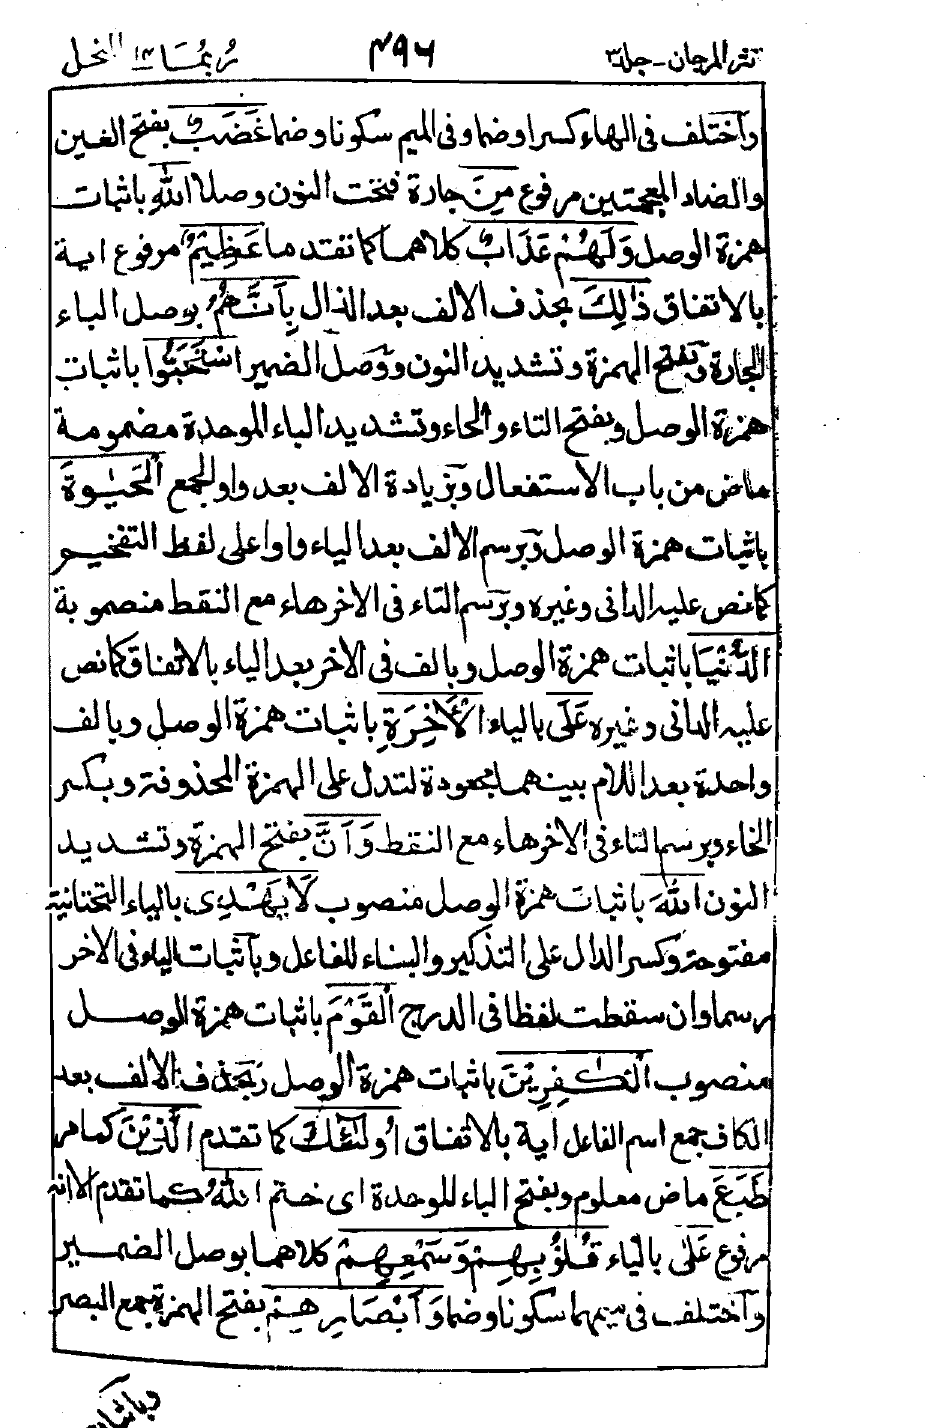 نثر المرجان - جلد ٣ ٤٩٦ ربما ١٤ النحل
واختلف فى الهاء كسرا وضما وفى الميم سكونا وضما غَضَبٌ بفتح الغين
والضاد المعجمتين مرفوع مِنَ جارة فتحت النون وصلا اللهِ باثبات
همزة الوصل وَلَهُمْ عَذَابٌ كلاهما كما تقدما عَظِيْمٌ مرفوع اية
بالاتفاق ذٰلِكَ بحذف الالف بعد الذال بِاَنَّهُمُ بوصل الباء
الجارة وبفتح الهمزة وتشديد النون ووصل الضمير اسْتَحَبُّوا باثبات
همزة الوصل وبفتح التاء والحاء وتشديد الباء الموحدة مضمومة
ماض من باب الاستفعال وبزيادة الالف بعد واو الجمع الْحَيٰوةَ
باثبات همزة الوصل وبرسم الالف بعد الياء واوا على لفظ التفخيم
كما نص عليه الدانى وغيره وبرسم التاء فى الاخر هاء مع النقط منصوبة
الدُّنْيَا باثبات همزة الوصل وبالف فى الاخر بعد الياء بالاتفاق كما نص
عليه الدانى وغيره عَلَى بالياء الْاٰخِرَةِ باثبات همزة الوصل وبالف
واحدة بعد اللام بينهما مجعودة لتدل على الهمزة المحذوفة وبكسر
الخاء وبرسم التاء فى الاخر هاء مع النقط وَاَنَّ بفتح الهمزة وتشديد
النون اللهَ باثبات همزة الوصل منصوب لَا يَهْدِى بالياء التحتانية
مفتوحة وكسر الدال على التذكير والبناء للفاعل وباثبات الياء فى الاخر
رسما وان سقطت لفظا فى الدرج الْقَوْمَ باثبات همزة الوصل
منصوب الْكٰفِرِيْنَ باثبات همزة الوصل وبحذف الالف بعد
الكاف جمع اسم الفاعل اية بالاتفاق اُولٰئِكَ كما تقدم الَّذِيْنَ كما مر
طَبَعَ ماض معلوم وبفتح الباء الموحدة اى ختم اللهُ كما تقدم الا انه
مرفوع عَلٰى بالياء قُلُوْبِهِمْ وَسَمْعِهِمْ كلاهما بوصل الضمير
واختلف فى ميمهما سكونا وضما وَاَبْصَارِهِمْ بفتح الهمزة جمع البصر
وباثبات